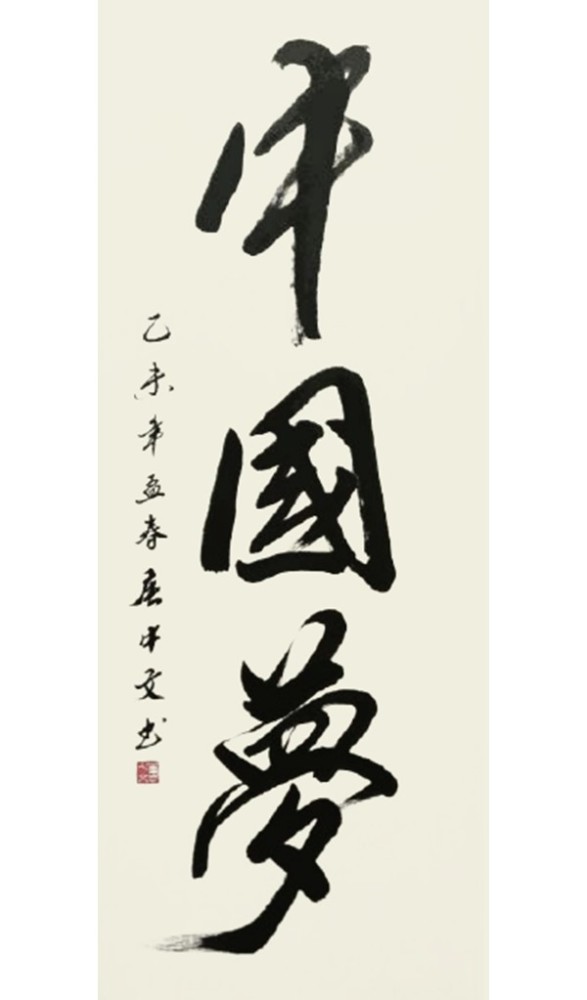 中國夢
乙未年孟春唐中文书